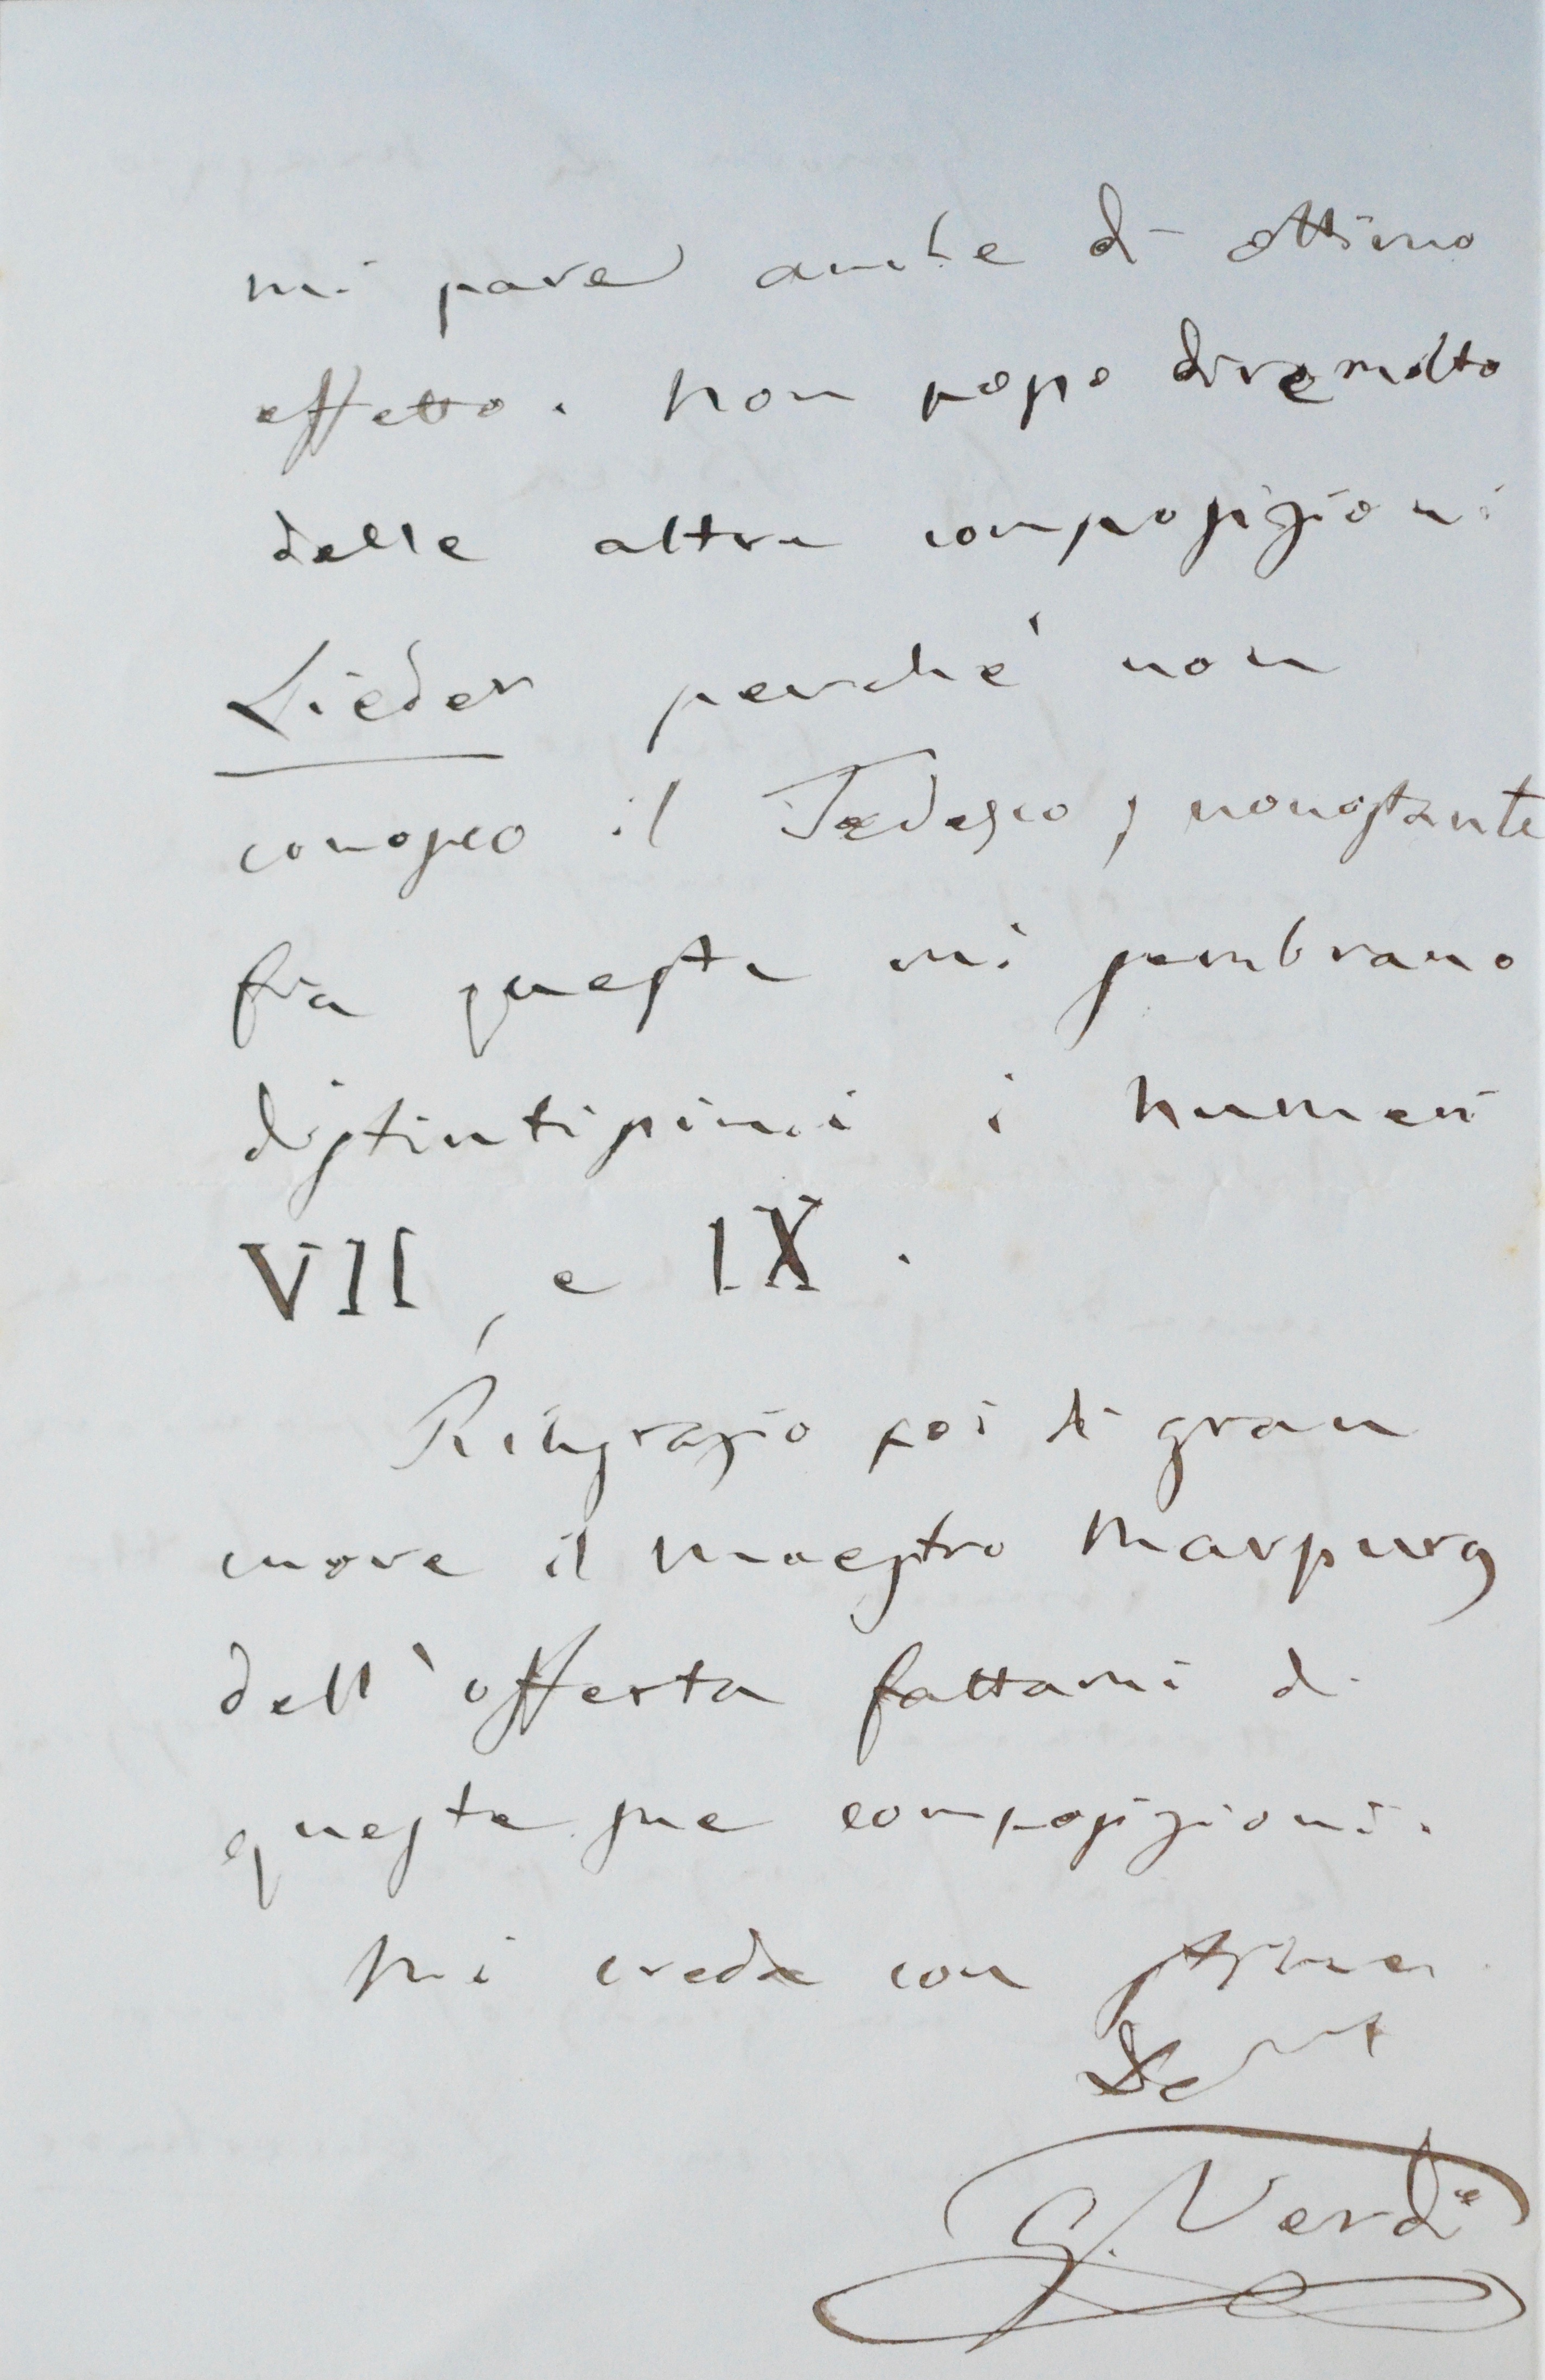 mi pare anche di ottimo
effetto. Non posso dire molto
delle altre composizioni
Lieder perchè non
conosco il Tedesco, nonostante
fra queste mi sembrano
distintissimi i numeri
VII, e IX.
Ringrazio poi di gran
cuore il Maestro Marpurg
dell'offerta fattami di
queste sue composizioni.
Mi creda con stima
G. Verdi